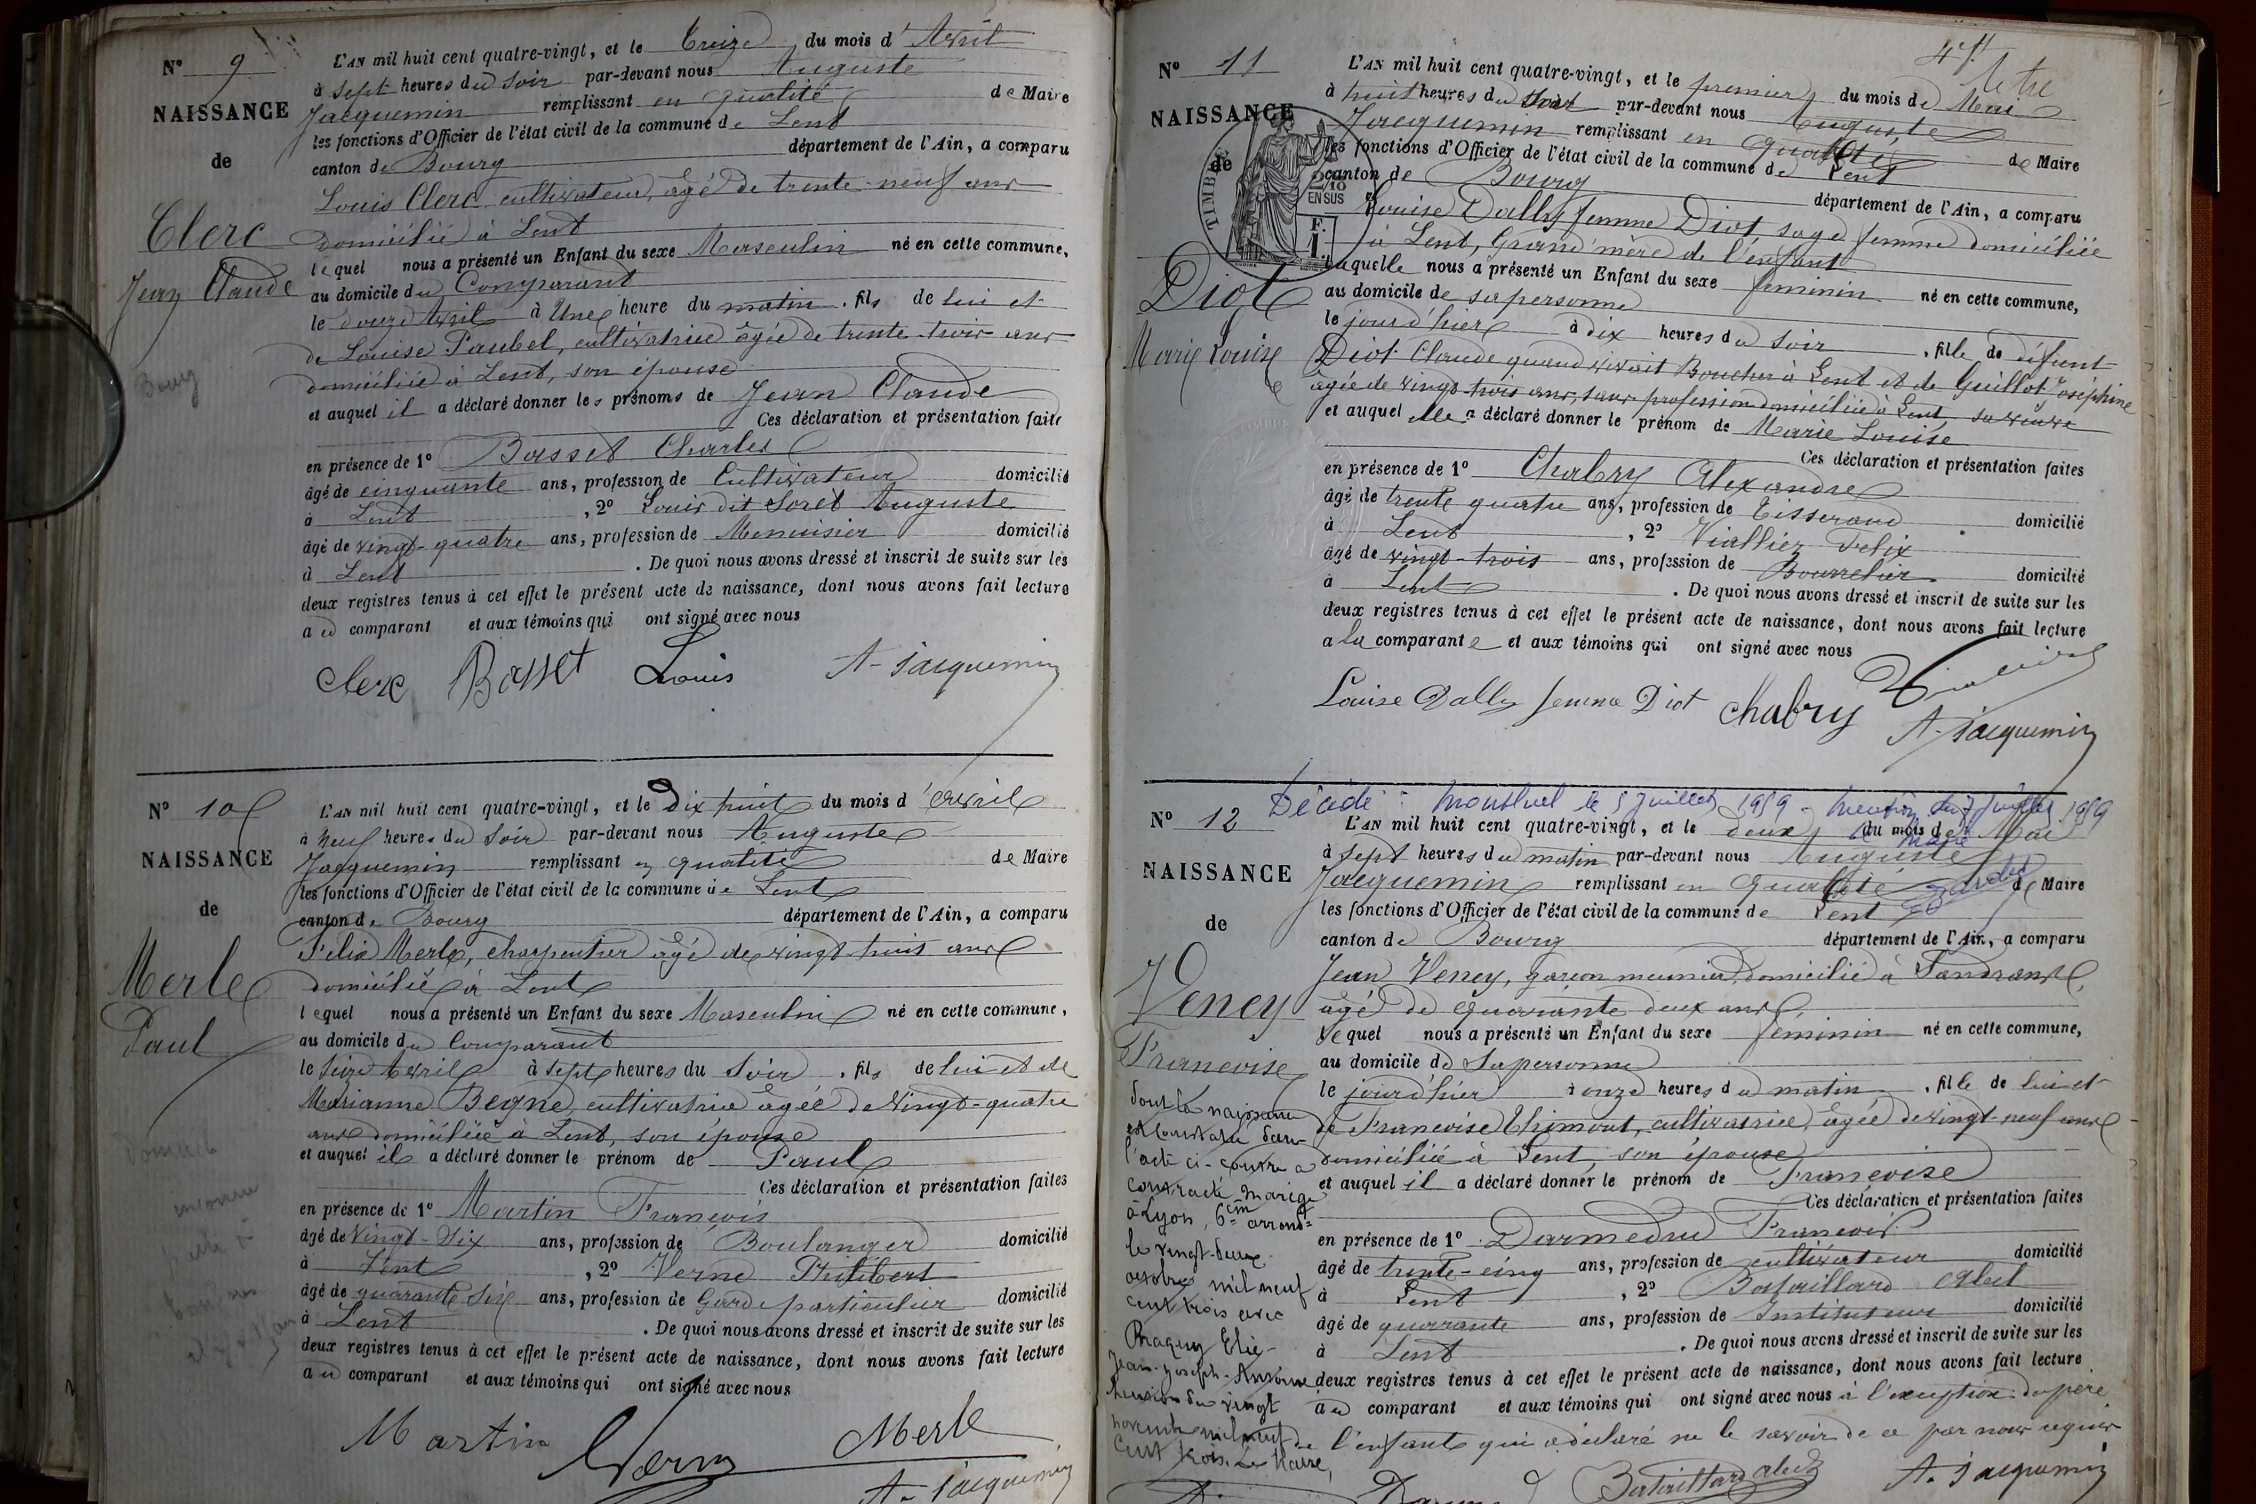 N° 9
NAISSANCE
de
Clerc
Jean Claude
Bourg
L'AN mil huit cent quatre-vingt, et le treize du mois d'Avril
à sept heures du soir par-devant nous Auguste
Jacquemin remplissant en qualité de Maire
les fonctions d'Officier de l'état civil de la commune de Lent
canton de Bourg département de l'Ain, a comparu
Louis Clerc cultivateur, âgé de trente neuf ans
domicilié à Lent
lequel nous a présenté un Enfant du sexe Masculin né en cette commune,
au domicile du Comparant
le douze Avril à Une heure du matin, fils de lui et
de Louise Paubel, cultivatrice âgée de trente-trois ans
domiciliée à Lent, son épouse
et auquel il a déclaré donner les prénoms de Jean Claude
Ces déclaration et présentation faites
en présence de 1° Basset Charles
âgé de cinquante ans, profession de Cultivateur domicilié
à Lent, 2° Louis dit Soret Auguste
âgé de vingt-quatre ans, profession de Menuisier domicilié
à Lent. De quoi nous avons dressé et inscrit de suite sur les
deux registres tenus à cet effet le présent acte de naissance, dont nous avons fait lecture
au comparant et aux témoins qui ont signé avec nous
Clerc Basset Louis A. Jacquemin
N° 10
NAISSANCE
de
Merle
Paul
L'AN mil huit cent quatre-vingt, et le Dix huit du mois d'Avril
à Neuf heures du Soir par-devant nous Auguste
Jacquemin remplissant en qualité de Maire
les fonctions d'Officier de l'état civil de la commune de Lent
canton de Bourg département de l'Ain, a comparu
Félix Merle, charpentier âgé de vingt-huit ans
domicilié à Lent
lequel nous a présenté un Enfant du sexe Masculin né en cette commune,
au domicile du Comparant
le seize Avril à sept heures du Soir, fils de lui et de
Marianne Beyne, cultivatrice âgée de vingt-quatre
ans domiciliée à Lent, son épouse
et auquel il a déclaré donner le prénom de Paul
Ces déclaration et présentation faites
en présence de 1° Martin François
âgé de Vingt-Six ans, profession de Boulanger domicilié
à Lent, 2° Verne Philibert
âgé de quarante Six ans, profession de Garde particulier domicilié
à Lent. De quoi nous avons dressé et inscrit de suite sur les
deux registres tenus à cet effet le présent acte de naissance, dont nous avons fait lecture
au comparant et aux témoins qui ont signé avec nous
Martin Verne Merle
A. Jacquemin
N° 11
NAISSANCE
de
TIMBRE
2/10
EN SUS
F.
1.
Diot
Marie Louise
L'AN mil huit cent quatre-vingt, et le premier du mois de Mai
à huit heures du soir par-devant nous Auguste
Jacquemin remplissant en qualité de Maire
les fonctions d'Officier de l'état civil de la commune de Lent
canton de Bourg département de l'Ain, a comparu
Louise Dally femme Diot sage femme domiciliée
à Lent, Grand'mère de l'enfant
laquelle nous a présenté un Enfant du sexe féminin né en cette commune,
au domicile de sa personne
le jour d'hier à dix heures du Soir, fille de défunt
Diot Claude quand vivait Boucher à Lent et de Guillot Joséphine
âgée de vingt-trois ans, sans profession domiciliée à Lent sa veuve
et auquel elle a déclaré donner le prénom de Marie Louise
Ces déclaration et présentation faites
en présence de 1° Chabry Alexandre
âgé de trente quatre ans, profession de Tisserand domicilié
à Lent, 2° Viallier Félix
âgé de vingt-trois ans, profession de Bourrelier domicilié
à Lent. De quoi nous avons dressé et inscrit de suite sur les
deux registres tenus à cet effet le présent acte de naissance, dont nous avons fait lecture
a la comparante et aux témoins qui ont signé avec nous
Louise Dally femme Diot Chabry
A. Jacquemin
N° 12
Décédé à Montluel le 5 Juillet 1959 - Mention du 7 Juillet 1959
NAISSANCE
de
Veney
Francoise
L'AN mil huit cent quatre-vingt, et le deux du mois de Mai
à sept heures du matin par-devant nous Auguste
Jacquemin remplissant en qualité de Maire
les fonctions d'Officier de l'état civil de la commune de Lent
canton de Bourg département de l'Ain, a comparu
Jean Veney, garçon meunier, domicilié à Sandrans,
âgé de quarante deux ans
lequel nous a présenté un Enfant du sexe féminin né en cette commune,
au domicile de sa personne
le jour d'hier à onze heures du matin, fille de lui et
de Francoise Thimont, cultivatrice, âgée de vingt-neuf ans
domiciliée à Lent, son épouse
et auquel il a déclaré donner le prénom de Francoise
Ces déclaration et présentation faites
en présence de 1° Darmedru François
âgé de trente-cinq ans, profession de cultivateur domicilié
à Lent, 2° Bataillard Abel
âgé de quarante ans, profession de Instituteur domicilié
à Lent. De quoi nous avons dressé et inscrit de suite sur les
deux registres tenus à cet effet le présent acte de naissance, dont nous avons fait lecture
au comparant et aux témoins qui ont signé avec nous à l'exception du père
de l'enfant qui a déclaré ne le savoir de ce par nous requis
Bataillard Abel A. Jacquemin
dont la naissance
est constatée dans
l'acte ci-contre a
contracté mariage
à Lyon, 6em arrondt
le vingt-deux
octobre mil neuf
cent trois avec
Maguy Elie-
Jean-Joseph-Antoine
Mention du vingt
novembre mil neuf
cent trois. Le Maire,